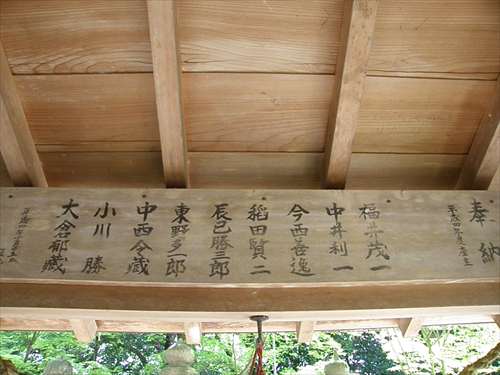 奉納
福井茂一
中井利一
今西善逸
稲田賢二
辰巳勝三郎
東野多一郎
中西今蔵
小川勝
大倉郁蔵